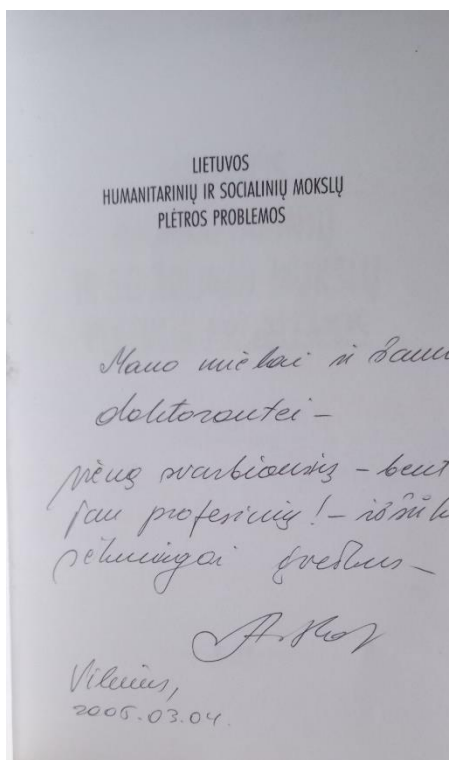 LIETUVOS
HUMANITARINIŲ IR SOCIALINIŲ MOKSLŲ
PLĖTROS PROBLEMOS
Mano mielai ir
doktorantei –
vieną svarbiausių – bent
jau profesinių! –
sėkmingai įveikus –
Vilnius,
2005.03.04.